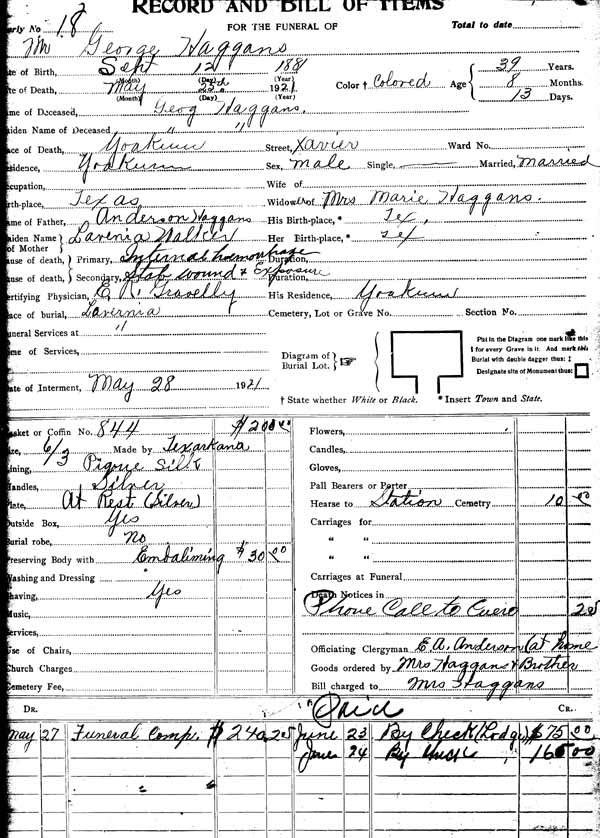 RECORD AND BILL OF ITEMS
arly No 18
FOR THE FUNERAL OF
Total to date
Mr George Haggans
te of Birth, Sept 12 1881
(Month) (Day) (Year)
te of Death, May 25th 1921
(Month) (Day) (Year)
Color † Colored Age { 39 Years.
8 Months.
13 Days.
me of Deceased, Georg Haggans.
aiden Name of Deceased " "
ace of Death, Yoakum Street, Xavier Ward No.
esidence, Yoakum Sex, male Single, — Married, Married
ccupation, Wife of
rth-place, Texas Widow of Mrs Marie Haggans.
ame of Father, Anderson Haggans His Birth-place, * Tex.
aiden Name of Mother } Lavenia Walker Her Birth-place, * Tex
ause of death, } Primary, Internal haemourhage Duration,
ause of death, } Secondary, Stab wound & Exposure Duration,
ertifying Physician, E. R. Gravelly His Residence, Yoakum
ace of burial, Lavernia Cemetery, Lot or Grave No. Section No.
uneral Services at "
me of Services,
Diagram of Burial Lot.
Put in the Diagram one mark like this
I for every Grave in it. And mark this
Burial with double dagger thus: ‡
Designate site of Monument thus:
ate of Interment, May 28 1921
† State whether White or Black. * Insert Town and State.
asket or Coffin No. 844 $200.00
ize, 6/3 Made by Texarkana
ining, Pigone Silk
andles, Silver
late, At Rest (Silver)
utside Box, Yes
urial robe, No
reserving Body with Embaliming $30.00
ashing and Dressing
having, Yes
usic,
ervices,
se of Chairs,
hurch Charges
emetery Fee,
Flowers,
Candles,
Gloves,
Pall Bearers or Porter
Hearse to Station Cemetry 10 00
Carriages for
" "
" "
Carriages at Funeral
Death Notices in
Phone Call to Cuero 25
Officiating Clergyman E.A. Anderson (at home
Goods ordered by Mrs Haggans & Brother
Bill charged to Mrs Haggans
DR. Paid CR.
May 27 Funeral Comp. $240.25 June 23 By Check (Lodge) $75.00
June 24 By Check 165 00